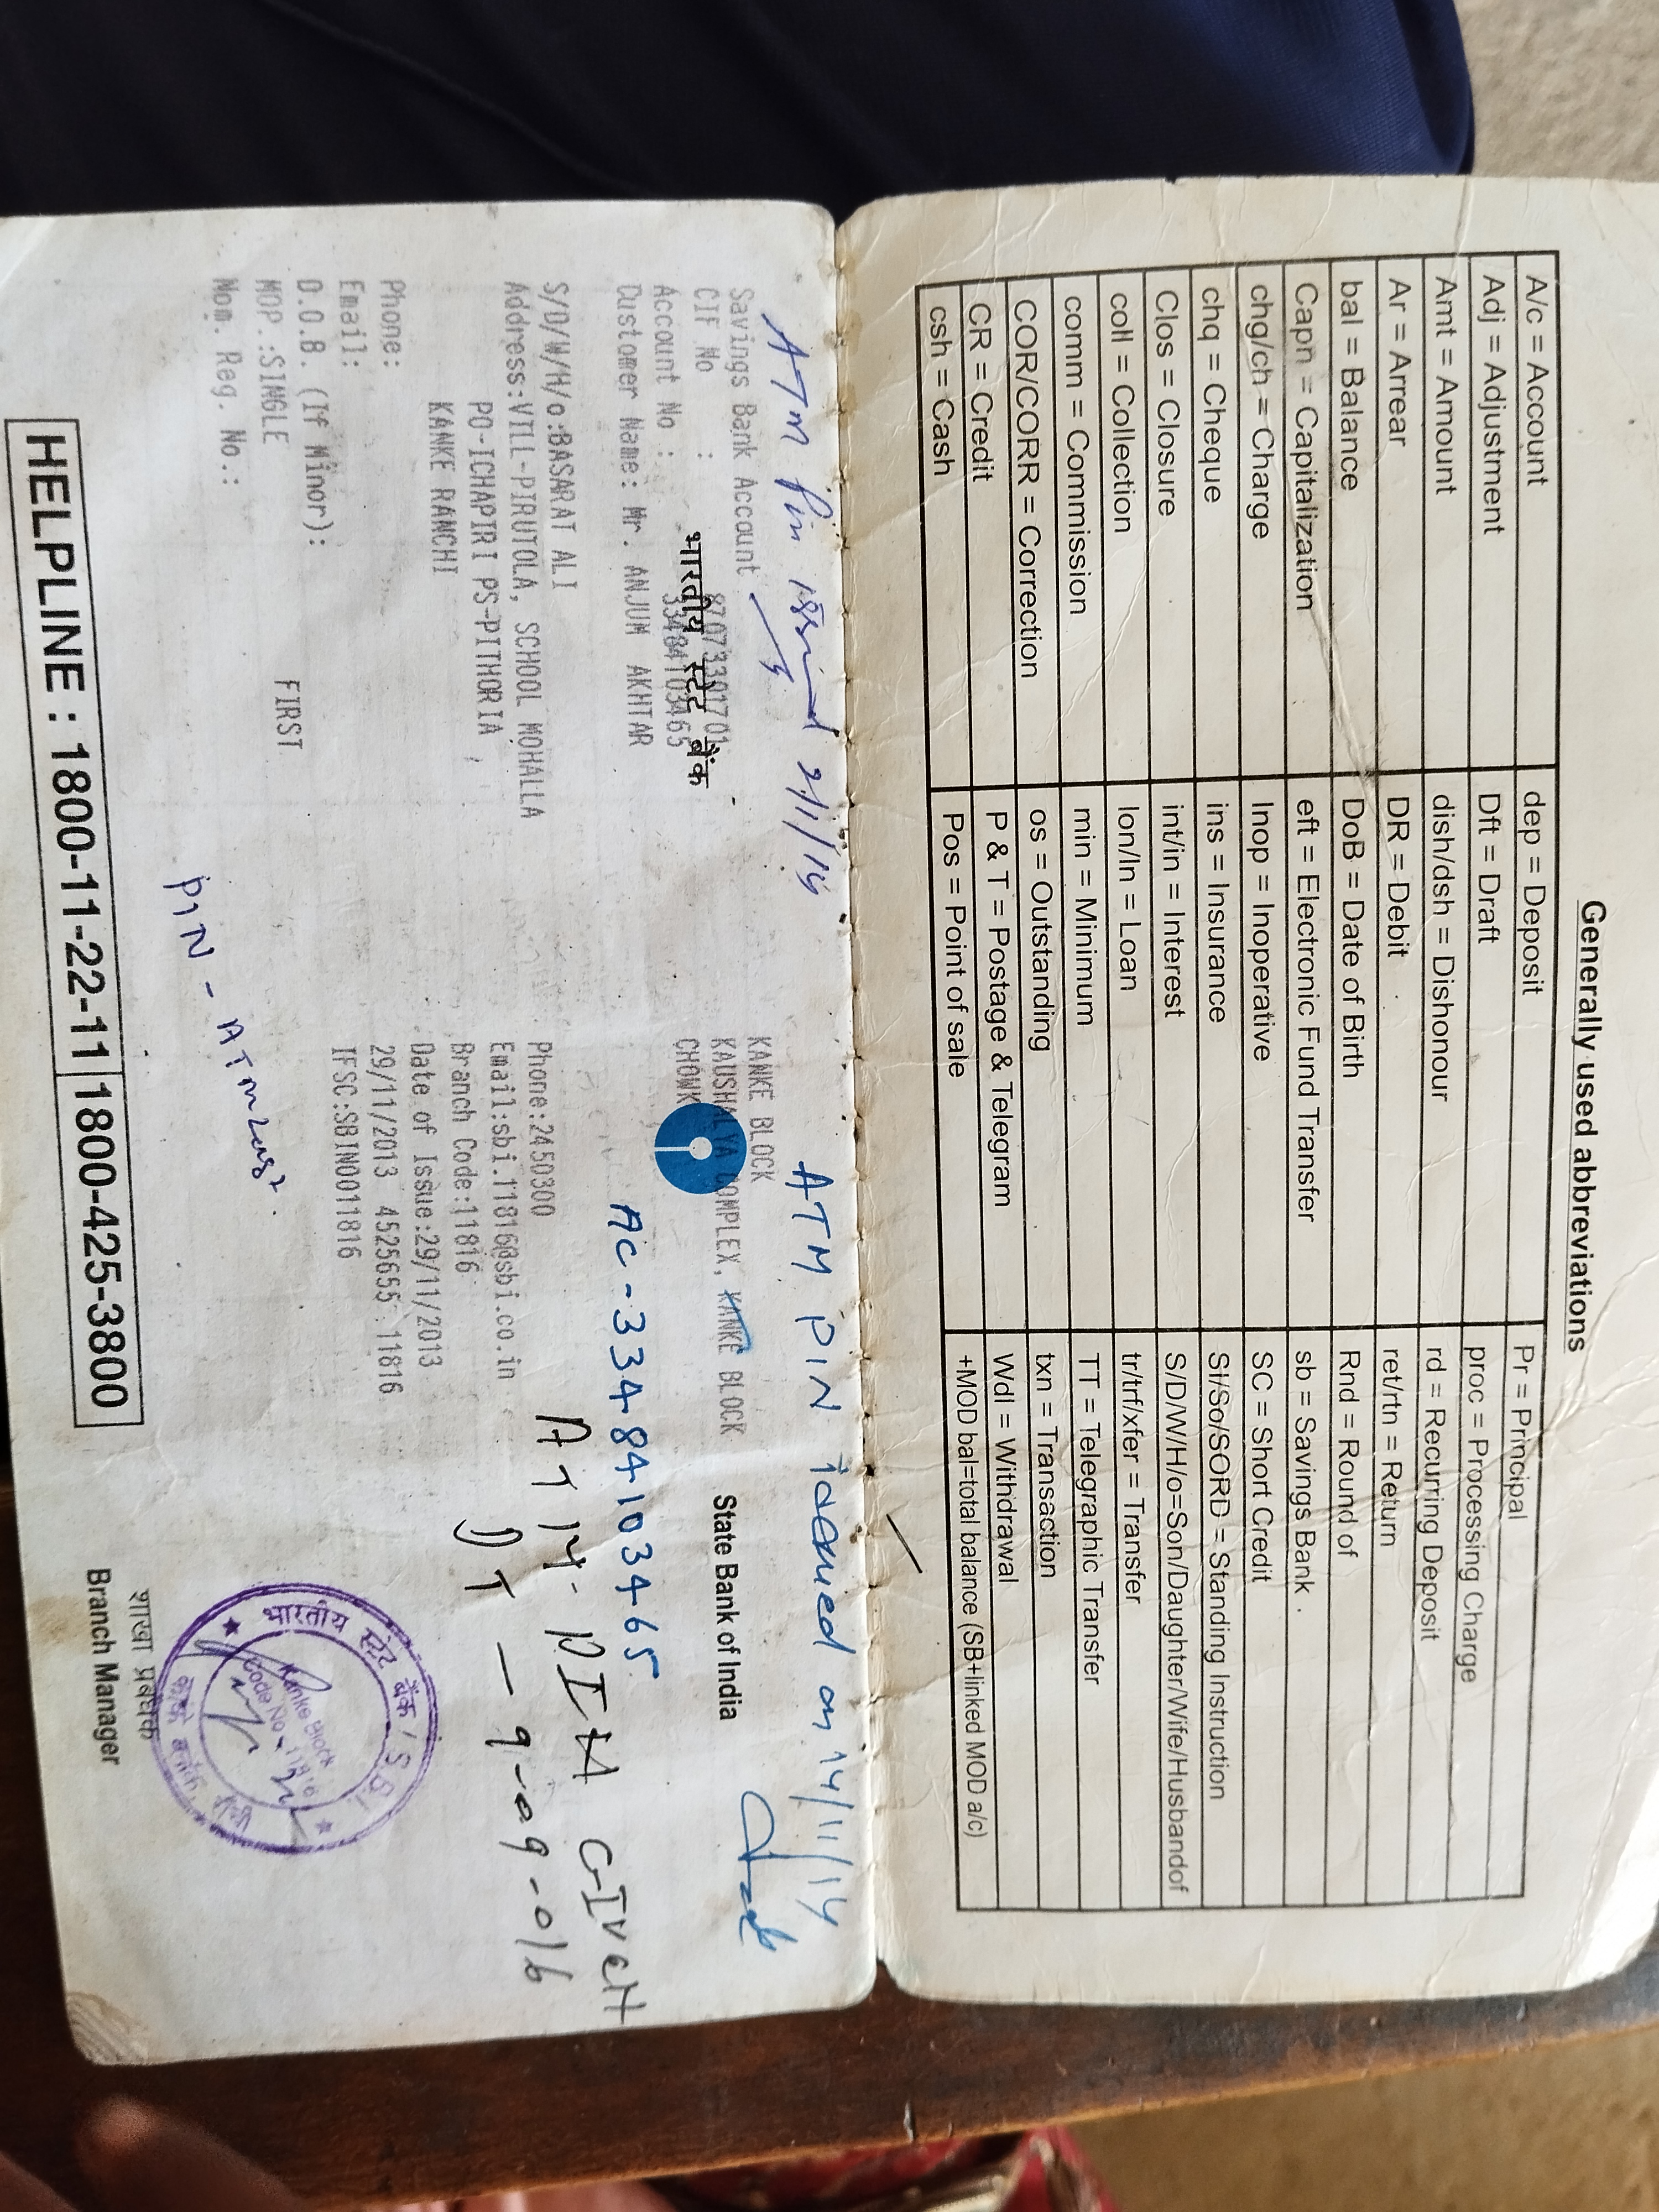 Generally used abbreviations
A/c = Account dep = Deposit Pr = Principal
Adj = Adjustment Dft = Draft proc = Processing Charge
Amt = Amount dish/dsh = Dishonour rd = Recurring Deposit
Ar = Arrear DR = Debit ret/rtn = Return
bal = Balance DoB = Date of Birth Rnd = Round of
Capn = Capitalization eft = Electronic Fund Transfer sb = Savings Bank .
chg/ch = Charge Inop = Inoperative SC = Short Credit
chq = Cheque ins = Insurance SI/So/SORD = Standing Instruction
Clos = Closure int/in = Interest S/D/W/H/o=Son/Daughter/Wife/Husbandof
coll = Collection lon/ln = Loan tr/trf/xfer = Transfer
comm = Commission min = Minimum TT = Telegraphic Transfer
COR/CORR = Correction os = Outstanding txn = Transaction
CR = Credit P & T = Postage & Telegram Wdl = Withdrawal
csh = Cash Pos = Point of sale +MOD bal=total balance (SB+linked MOD a/c)
ATM Pin issued 2/1/14
ATM PIN on 14/11/14
Savings Bank Account
KANKE BLOCK
CIF No : 87073301701
KAUSHALYA COMPLEX, KANKE BLOCK
Account No : 33484103465
CHOWK
भारतीय स्टेट बैंक
State Bank of India
Customer Name: Mr. ANJUM AKHTAR
AC-33484103465
S/D/W/H/o:BASARAT ALI
Phone:2450300
ATM PIN GIVEN
Address:VILL-PIRUTOLA, SCHOOL MOHALLA
Email:sbi.11816@sbi.co.in
DT - 9-09-016
PO-ICHAPIRI PS-PITHORIA ,
Branch Code:11816
KANKE RANCHI
Date of Issue:29/11/2013
Phone:
29/11/2013 4525655 11816
Email:
IFSC:SBIN0011816
D.O.B. (If Minor):
MOP.:SINGLE FIRST
Nom. Reg. No.:
PIN - ATM
भारतीय स्टेट बैंक / S.B.I.
Kanke Block
Code No.-11816
शाखा प्रबंधक
Branch Manager
HELPLINE : 1800-11-22-11 1800-425-3800